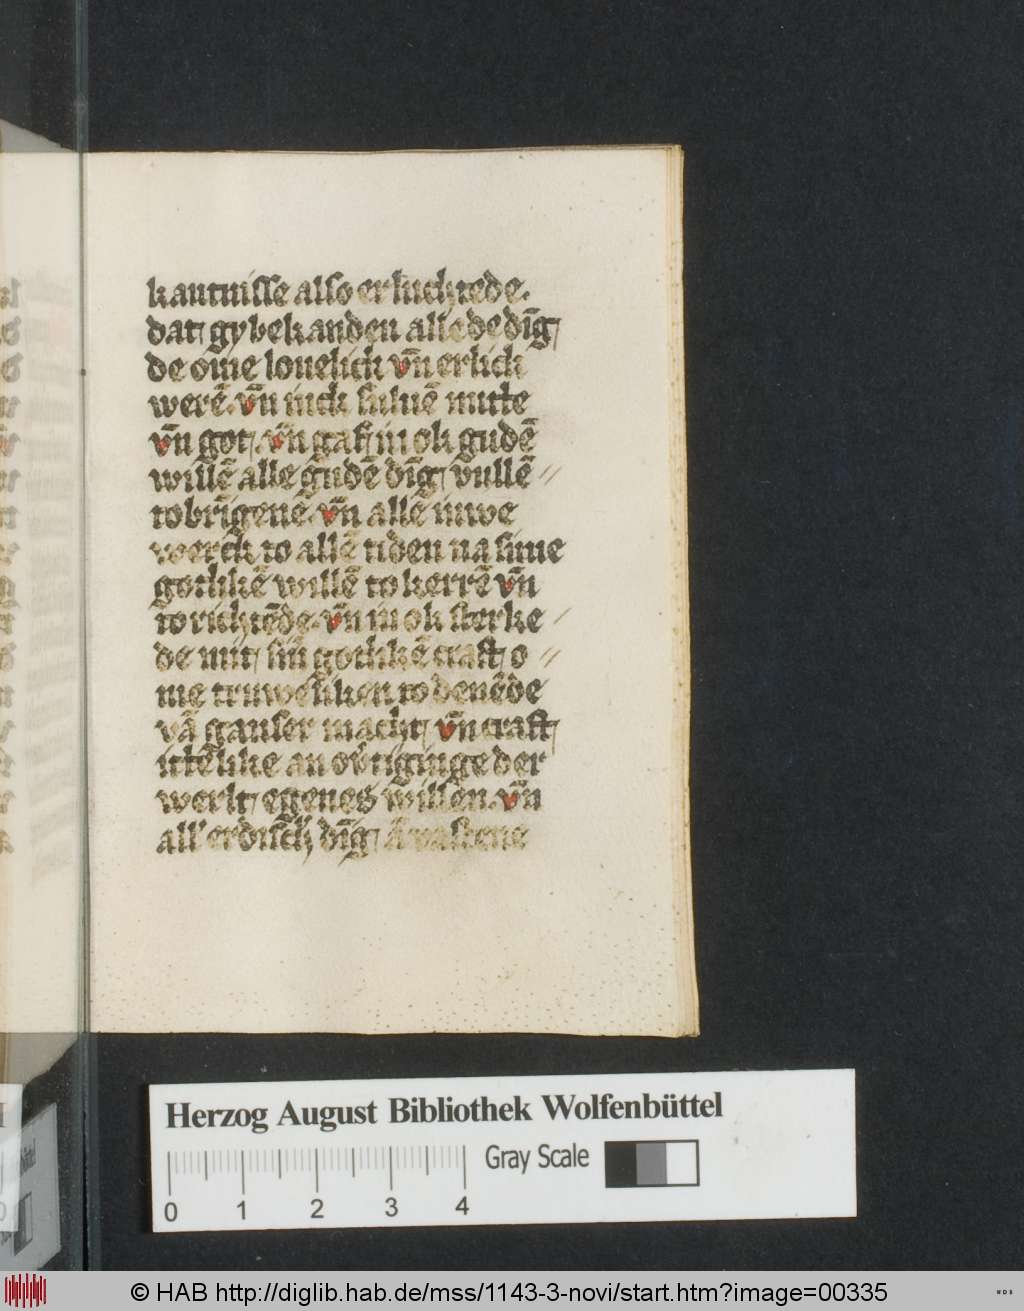 kantnisse also erluchtede.
dat/ gy bekanden alle de dīg/
de ome louelick vn̄ erlick
werē. vn̄ iuck suluē nutte
vn̄ got/. vn̄ gaf iu ok gudē
willē alle gudē dīg/ vullē〃
tobrīgene. vn̄ allē iuwe
werck to allē tiden na sime
gotlikē willē to kerrē vn̄
to richtēde. vn̄ iu ok sterke⸗
de mit/ sin̄ gotlikē craft/ o〃
me truweliken to denēde
vā gantser macht/ vn̄ craft/
itlēlike an ov̄tiginge der
werlt/ egenes willen. vn̄
all' erdisch' dīg/ ā vastene
Herzog August Bibliothek Wolfenbüttel
Gray Scale
0 1 2 3 4
© HAB http://diglib.hab.de/mss/1143-3-novi/start.htm?image=00335